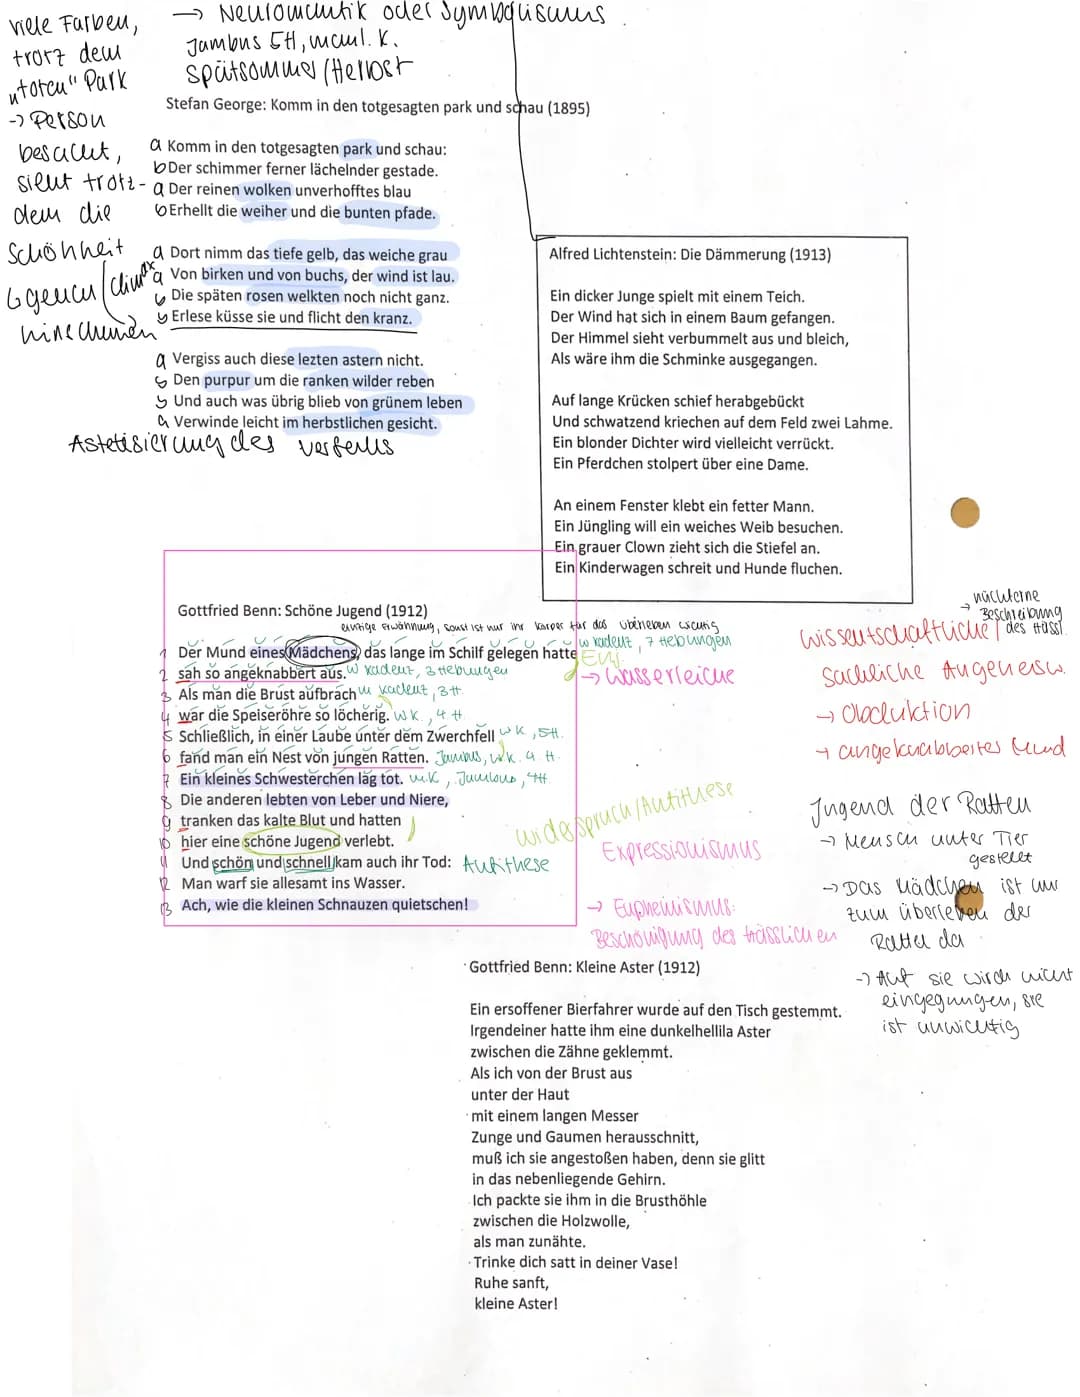 viele Farben,
trotz dem
"toten" Park
-> Person
besucht,
sieht trotz-
dem die
Schönheit
genau
hinschauen
climax
-> Neuromantik oder Symbolismus
Jambus 5H, männl. K.
Spätsommer/Herbst
Stefan George: Komm in den totgesagten park und schau (1895)
a Komm in den totgesagten park und schau:
b Der schimmer ferner lächelnder gestade.
a Der reinen wolken unverhofftes blau
b Erhellt die weiher und die bunten pfade.
a Dort nimm das tiefe gelb, das weiche grau
a Von birken und von buchs, der wind ist lau.
b Die späten rosen welkten noch nicht ganz.
b Erlese küsse sie und flicht den kranz.
a Vergiss auch diese lezten astern nicht.
b Den purpur um die ranken wilder reben
b Und auch was übrig blieb von grünem leben
a Verwinde leicht im herbstlichen gesicht.
Ästetisierung des Verfalls
Alfred Lichtenstein: Die Dämmerung (1913)
Ein dicker Junge spielt mit einem Teich.
Der Wind hat sich in einem Baum gefangen.
Der Himmel sieht verbummelt aus und bleich,
Als wäre ihm die Schminke ausgegangen.
Auf lange Krücken schief herabgebückt
Und schwatzend kriechen auf dem Feld zwei Lahme.
Ein blonder Dichter wird vielleicht verrückt.
Ein Pferdchen stolpert über eine Dame.
An einem Fenster klebt ein fetter Mann.
Ein Jüngling will ein weiches Weib besuchen.
Ein grauer Clown zieht sich die Stiefel an.
Ein Kinderwagen schreit und Hunde fluchen.
Gottfried Benn: Schöne Jugend (1912)
einzige Erwähnung, sonst ist nur ihr Körper für das überleben wichtig
1 Der Mund eines Mädchens, das lange im Schilf gelegen hatte w Kadenz, 7 Hebungen
2 sah so angeknabbert aus. w Kadenz, 3 Hebungen
-> Wasserleiche
3 Als man die Brust aufbrach m Kadenz, 3H.
4 war die Speiseröhre so löcherig. w K., 4 H.
5 Schließlich, in einer Laube unter dem Zwerchfell w K, 5H.
6 fand man ein Nest von jungen Ratten. Jambus, w.K. 4 H.
7 Ein kleines Schwesterchen lag tot. m.K, Jambus, 4H.
8 Die anderen lebten von Leber und Niere,
9 tranken das kalte Blut und hatten
10 hier eine schöne Jugend verlebt.
11 Und schön und schnell kam auch ihr Tod: Antithese
12 Man warf sie allesamt ins Wasser.
13 Ach, wie die kleinen Schnauzen quietschen!
Widerspruch/Antithese
Expressionismus
-> Euphemismus:
Beschönigung des Hässlichen
-> nüchterne
Beschreibung
des Hässl.
wissentschaftliche/
sachliche Angehensw.
-> Obduktion
-> angeknabberter Mund
Jugend der Ratten
-> Mensch unter Tier
gestellt
-> Das Mädchen ist nur
zum überleben der
Ratten da
-> Auf sie wird nicht
eingegangen, sie
ist unwichtig
Gottfried Benn: Kleine Aster (1912)
Ein ersoffener Bierfahrer wurde auf den Tisch gestemmt.
Irgendeiner hatte ihm eine dunkelhellila Aster
zwischen die Zähne geklemmt.
Als ich von der Brust aus
unter der Haut
mit einem langen Messer
Zunge und Gaumen herausschnitt,
muß ich sie angestoßen haben, denn sie glitt
in das nebenliegende Gehirn.
Ich packte sie ihm in die Brusthöhle
zwischen die Holzwolle,
als man zunähte.
Trinke dich satt in deiner Vase!
Ruhe sanft,
kleine Aster!